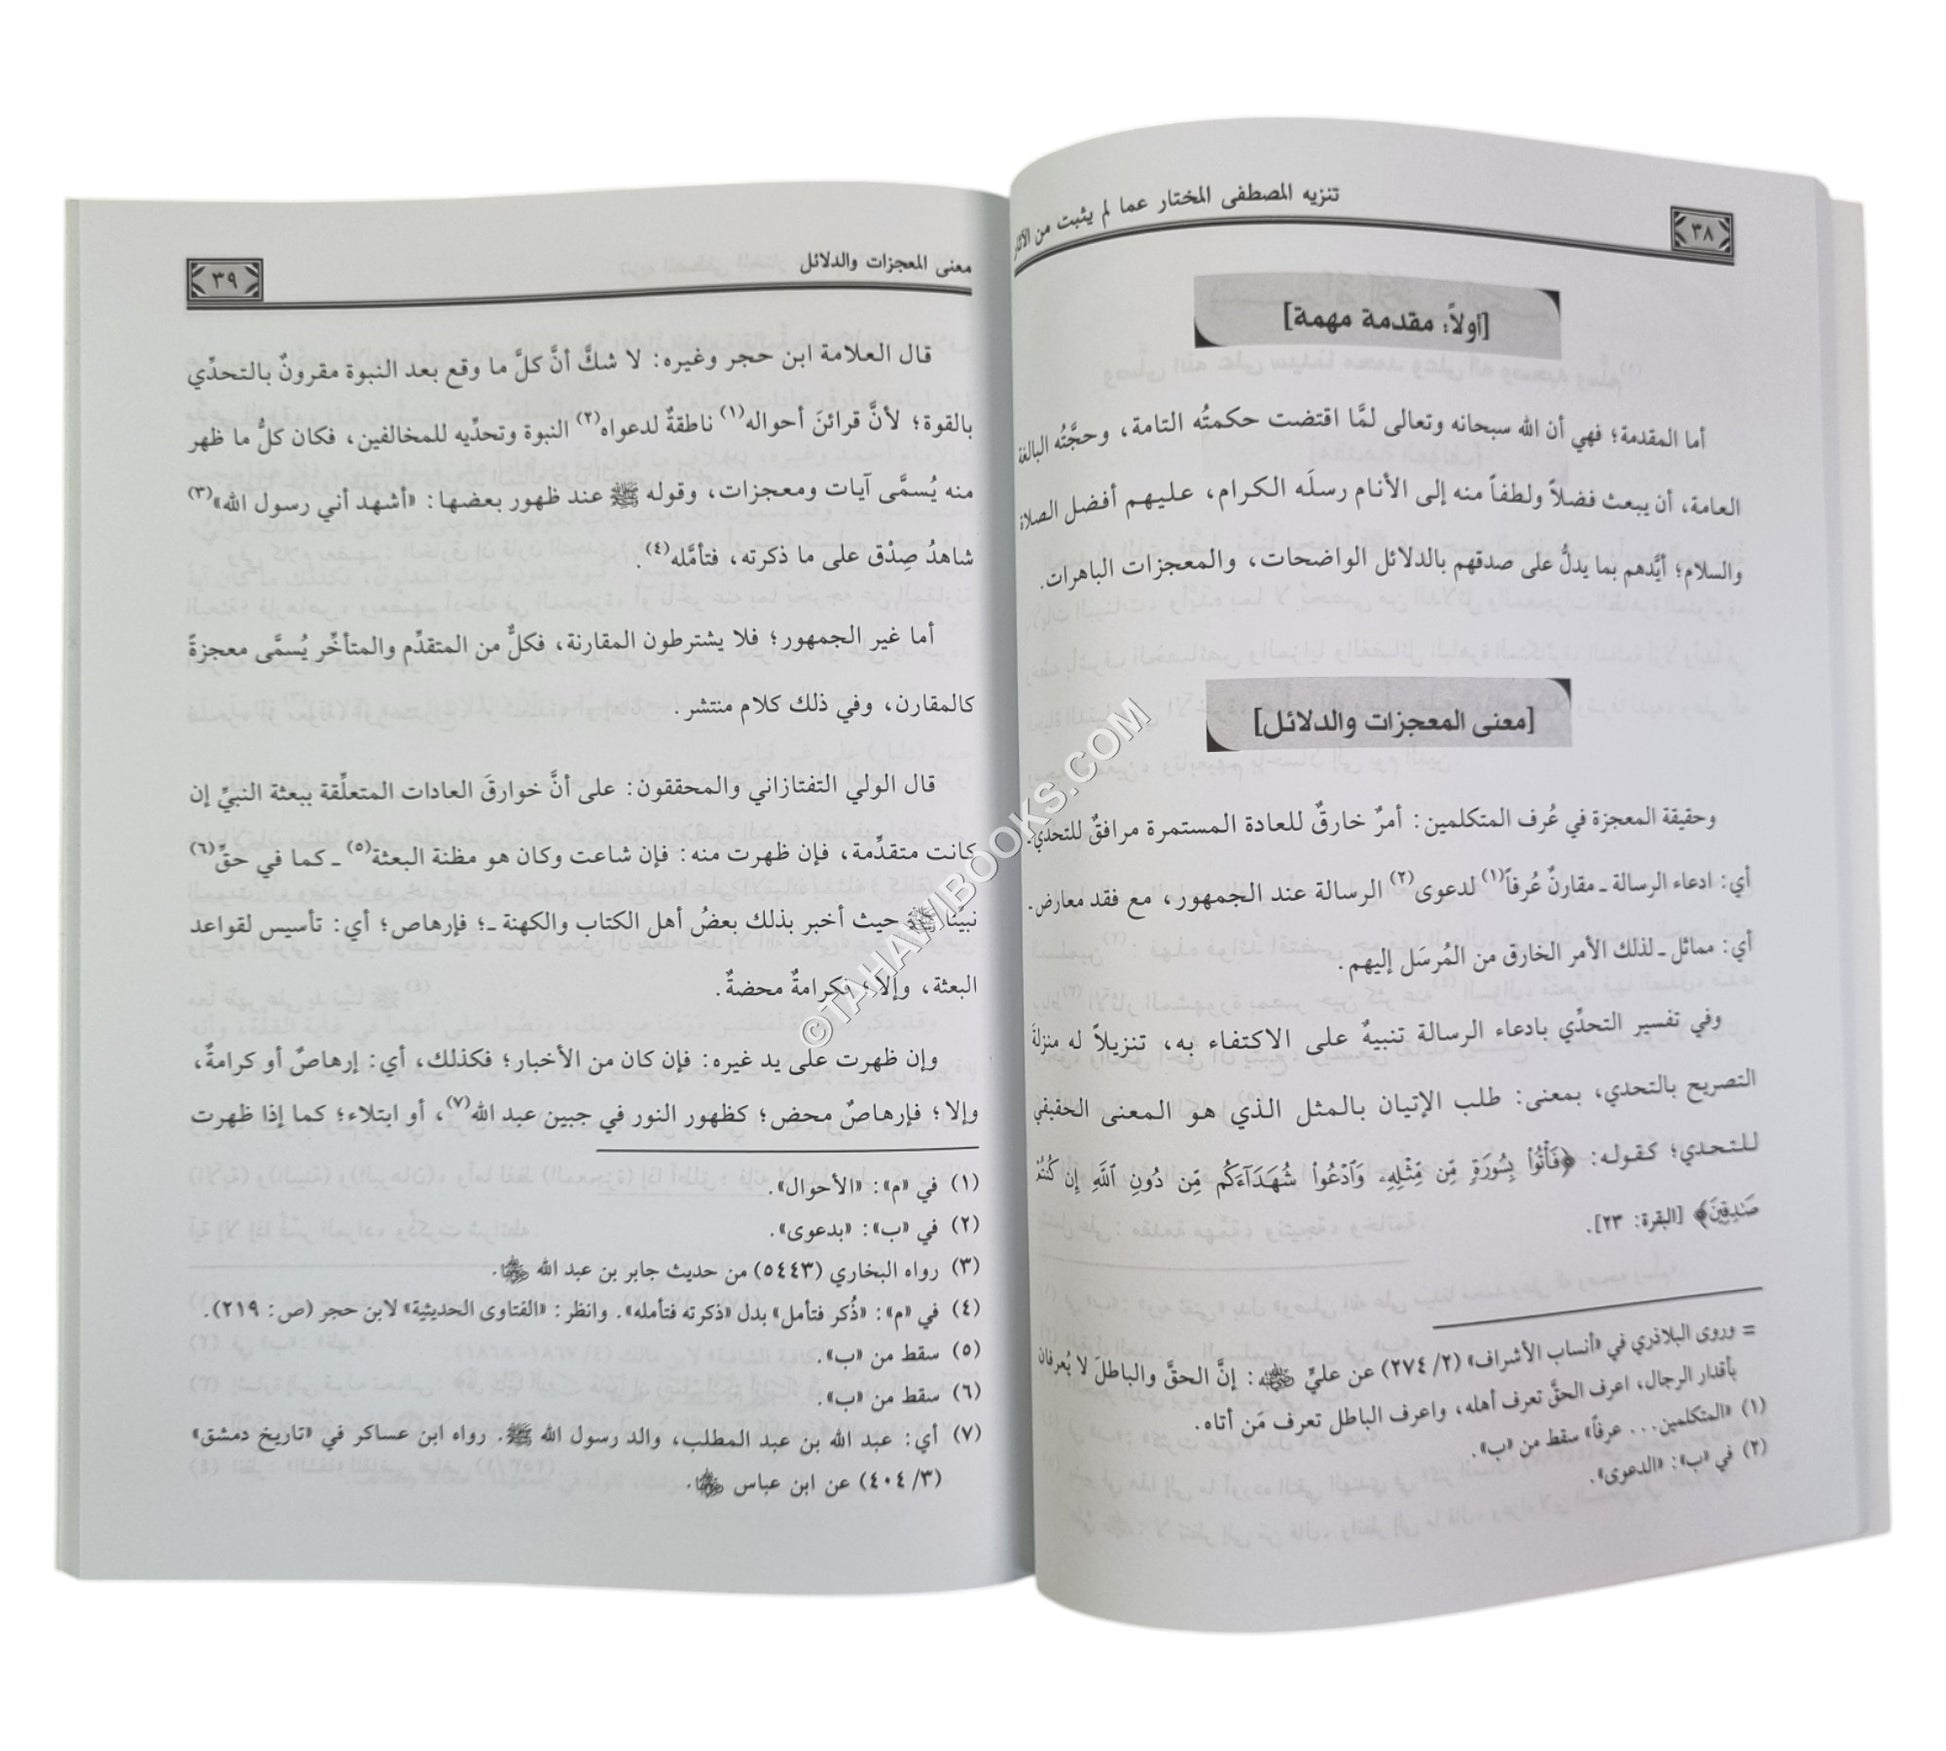 ٣٨
تنزيه المصطفى المختار عما لم يثبت من الآثار
[أولاً: مقدمة مهمة]
أما المقدمة؛ فهي أن الله سبحانه وتعالى لمَّا اقتضت حكمتُه التامة، وحجَّتُه البالغة
العامة، أن يبعث فضلاً ولطفاً منه إلى الأنام رسلَه الكرام، عليهم أفضل الصلاة
والسلام؛ أيَّدهم بما يدلُّ على صدقهم بالدلائل الواضحات، والمعجزات الباهرات.
[معنى المعجزات والدلائل]
وحقيقة المعجزة في عُرف المتكلمين: أمرٌ خارقٌ للعادة المستمرة مرافقٌ للتحدي ـ
أي: ادعاء الرسالة ـ مقارنٌ عُرفاً(١) لدعوى(٢) الرسالة عند الجمهور، مع فقد معارض ـ
أي: مماثل ـ لذلك الأمر الخارق من المُرسَل إليهم.
وفي تفسير التحدِّي بادعاء الرسالة تنبيهٌ على الاكتفاء به، تنزيلاً له منزلةَ
التصريح بالتحدي، بمعنى: طلب الإتيان بالمثل الذي هو المعنى الحقيقي
للتحدي؛ كقوله: ﴿فَأْتُوا۟ بِسُورَةٍ مِّن مِّثْلِهِۦ وَٱدْعُوا۟ شُهَدَآءَكُم مِّن دُونِ ٱللَّهِ إِن كُنتُمْ
صَٰدِقِينَ﴾ [البقرة: ٢٣].
= وروى البلاذري في «أنساب الأشراف» (٢/ ٢٧٤) عن عليٍّ رضي الله عنه: إنَّ الحقَّ والباطلَ لا يُعرفان
بأقدار الرجال، اعرف الحقَّ تعرف أهله، واعرف الباطل تعرف مَن أتاه.
(١) «المتكلمين... عرفاً» سقط من «ب».
(٢) في «ب»: «الدعوى».
معنى المعجزات والدلائل
٣٩
قال العلامة ابن حجر وغيره: لا شكَّ أنَّ كلَّ ما وقع بعد النبوة مقرونٌ بالتحدِّي
بالقوة؛ لأنَّ قرائنَ أحواله(١) ناطقةٌ لدعواه(٢) النبوة وتحدِّيه للمخالفين، فكان كلُّ ما ظهر
منه يُسمَّى آيات ومعجزات، وقوله ﷺ عند ظهور بعضها: «أشهد أني رسول الله»(٣)
شاهدُ صِدْق على ما ذكرته، فتأمَّله(٤).
أما غير الجمهور؛ فلا يشترطون المقارنة، فكلٌّ من المتقدِّم والمتأخِّر يُسمَّى معجزةً
كالمقارن، وفي ذلك كلام منتشر.
قال الولي التفتازاني والمحققون: على أنَّ خوارقَ العادات المتعلِّقة ببعثة النبيِّ إن
كانت متقدِّمة، فإن ظهرت منه: فإن شاعت وكان هو مظنة البعثة(٥) ـ كما في حقِّ(٦)
نبيِّنا ﷺ حيث أخبر بذلك بعضُ أهل الكتاب والكهنة ـ؛ فإرهاص؛ أي: تأسيس لقواعد
البعثة، وإلا؛ فكرامةٌ محضةٌ.
وإن ظهرت على يد غيره: فإن كان من الأخبار؛ فكذلك، أي: إرهاصٌ أو كرامةٌ،
وإلا؛ فإرهاصٌ محض؛ كظهور النور في جبين عبد الله(٧)، أو ابتلاء؛ كما إذا ظهرت
(١) في «م»: «الأحوال».
(٢) في «ب»: «بدعوى».
(٣) رواه البخاري (٥٤٤٣) من حديث جابر بن عبد الله رضي الله عنهما.
(٤) في «م»: «ذُكر فتأمل» بدل «ذكرته فتأمله». وانظر: «الفتاوى الحديثية» لابن حجر (ص: ٢١٩).
(٥) سقط من «ب».
(٦) سقط من «ب».
(٧) أي: عبد الله بن عبد المطلب، والد رسول الله ﷺ. رواه ابن عساكر في «تاريخ دمشق»
(٣/ ٤٠٤) عن ابن عباس رضي الله عنهما.
©TAHAWIBOOKS.COM